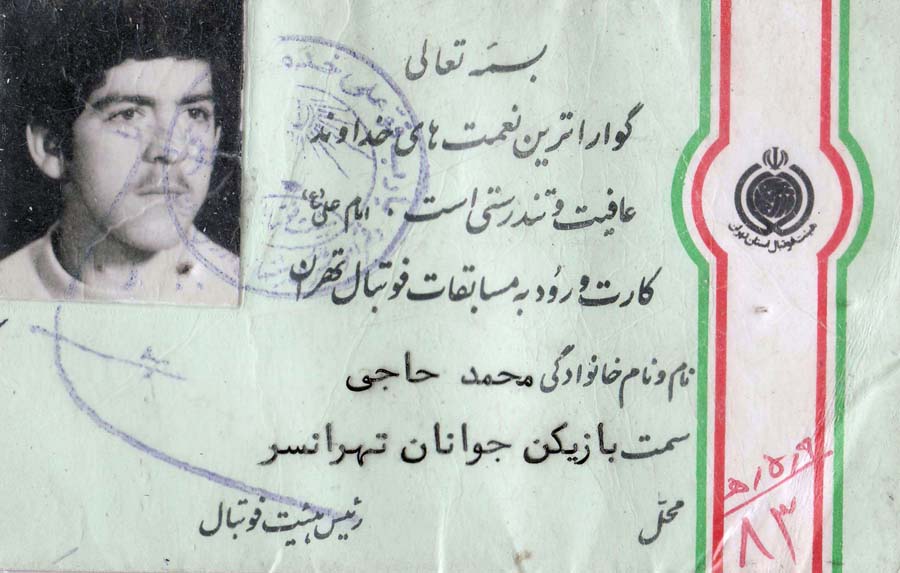 بسمه تعالی
گواراترین نعمت های خداوند
عافیت و تندرستی است . امام علی (ع)
کارت ورود به مسابقات فوتبال تهران
هیئت فوتبال استان تهران
نام و نام خانوادگی محمد حاجی
سمت بازیکن جوانان تهرانسر
محل
رئیس هیئت فوتبال
۸۳